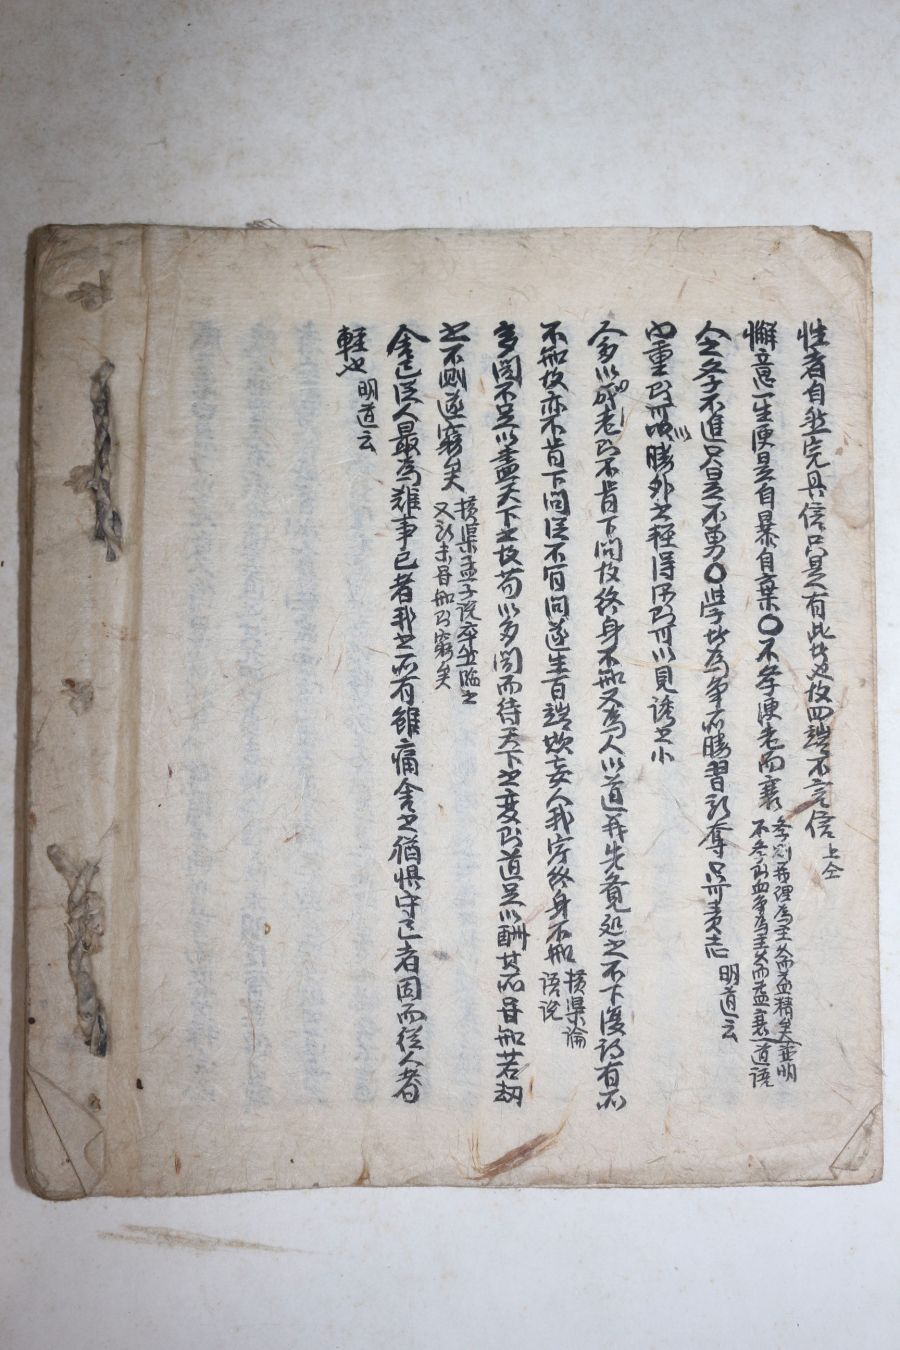 性者自然完具信只是有此者也故四端不言信 上仝
懈意一生便是自暴自棄〇不学便老而衰 学則義理為主久而益精矣並明
不学則血氣為主久而益衰 道語
人之学不進只是不勇〇学者為氣所勝習所奪只可責志 明道云
內重則可以勝外之輕得深則可以見誘之小
人多以老成則不肯下問故終身不知又為人以道義先覺処之不可復謂有所
不知故亦不肯下問従不肯問遂生百端欺妄人我寧終身不知 橫渠論
語說
多聞不足以盡天下之故苟以多聞而待天下之變則道足以酬其所甞知若刼
之不測遂窮矣 橫渠孟子說卒然臨之
又所未甞知則窮矣
舍己從人最為難事己者我之所有雖痛舍之猶懼守己者固而從人者
輕也 明道云